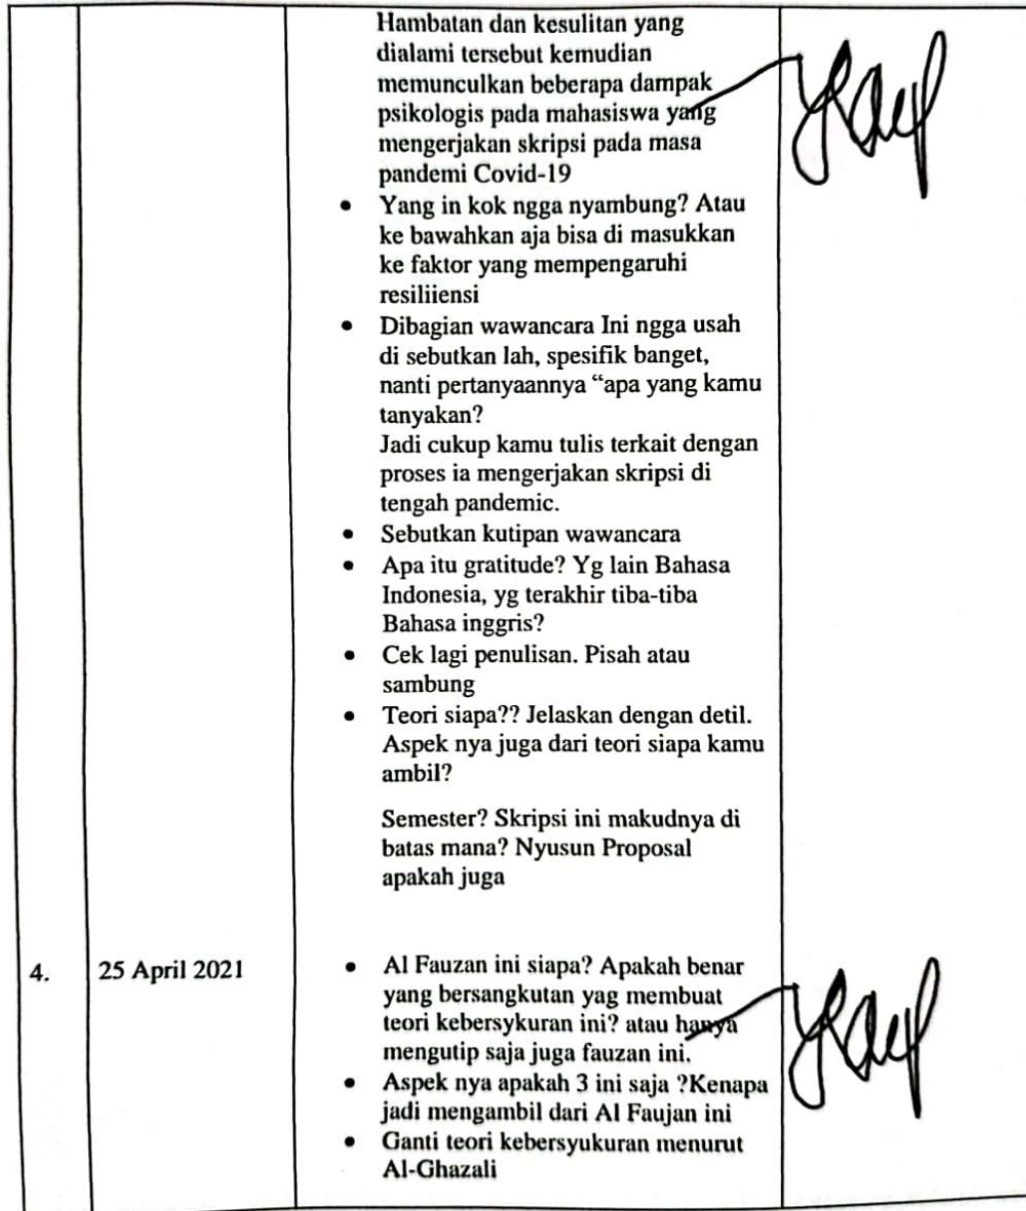 Hambatan dan kesulitan yang
dialami tersebut kemudian
memunculkan beberapa dampak
psikologis pada mahasiswa yang
mengerjakan skripsi pada masa
pandemi Covid-19
• Yang in kok ngga nyambung? Atau
ke bawahkan aja bisa di masukkan
ke faktor yang mempengaruhi
resiliiensi
• Dibagian wawancara Ini ngga usah
di sebutkan lah, spesifik banget,
nanti pertanyaannya “apa yang kamu
tanyakan?
Jadi cukup kamu tulis terkait dengan
proses ia mengerjakan skripsi di
tengah pandemic.
• Sebutkan kutipan wawancara
• Apa itu gratitude? Yg lain Bahasa
Indonesia, yg terakhir tiba-tiba
Bahasa inggris?
• Cek lagi penulisan. Pisah atau
sambung
• Teori siapa?? Jelaskan dengan detil.
Aspek nya juga dari teori siapa kamu
ambil?
Semester? Skripsi ini makudnya di
batas mana? Nyusun Proposal
apakah juga
4. 25 April 2021 • Al Fauzan ini siapa? Apakah benar
yang bersangkutan yag membuat
teori kebersykuran ini? atau hanya
mengutip saja juga fauzan ini.
• Aspek nya apakah 3 ini saja ?Kenapa
jadi mengambil dari Al Faujan ini
• Ganti teori kebersyukuran menurut
Al-Ghazali